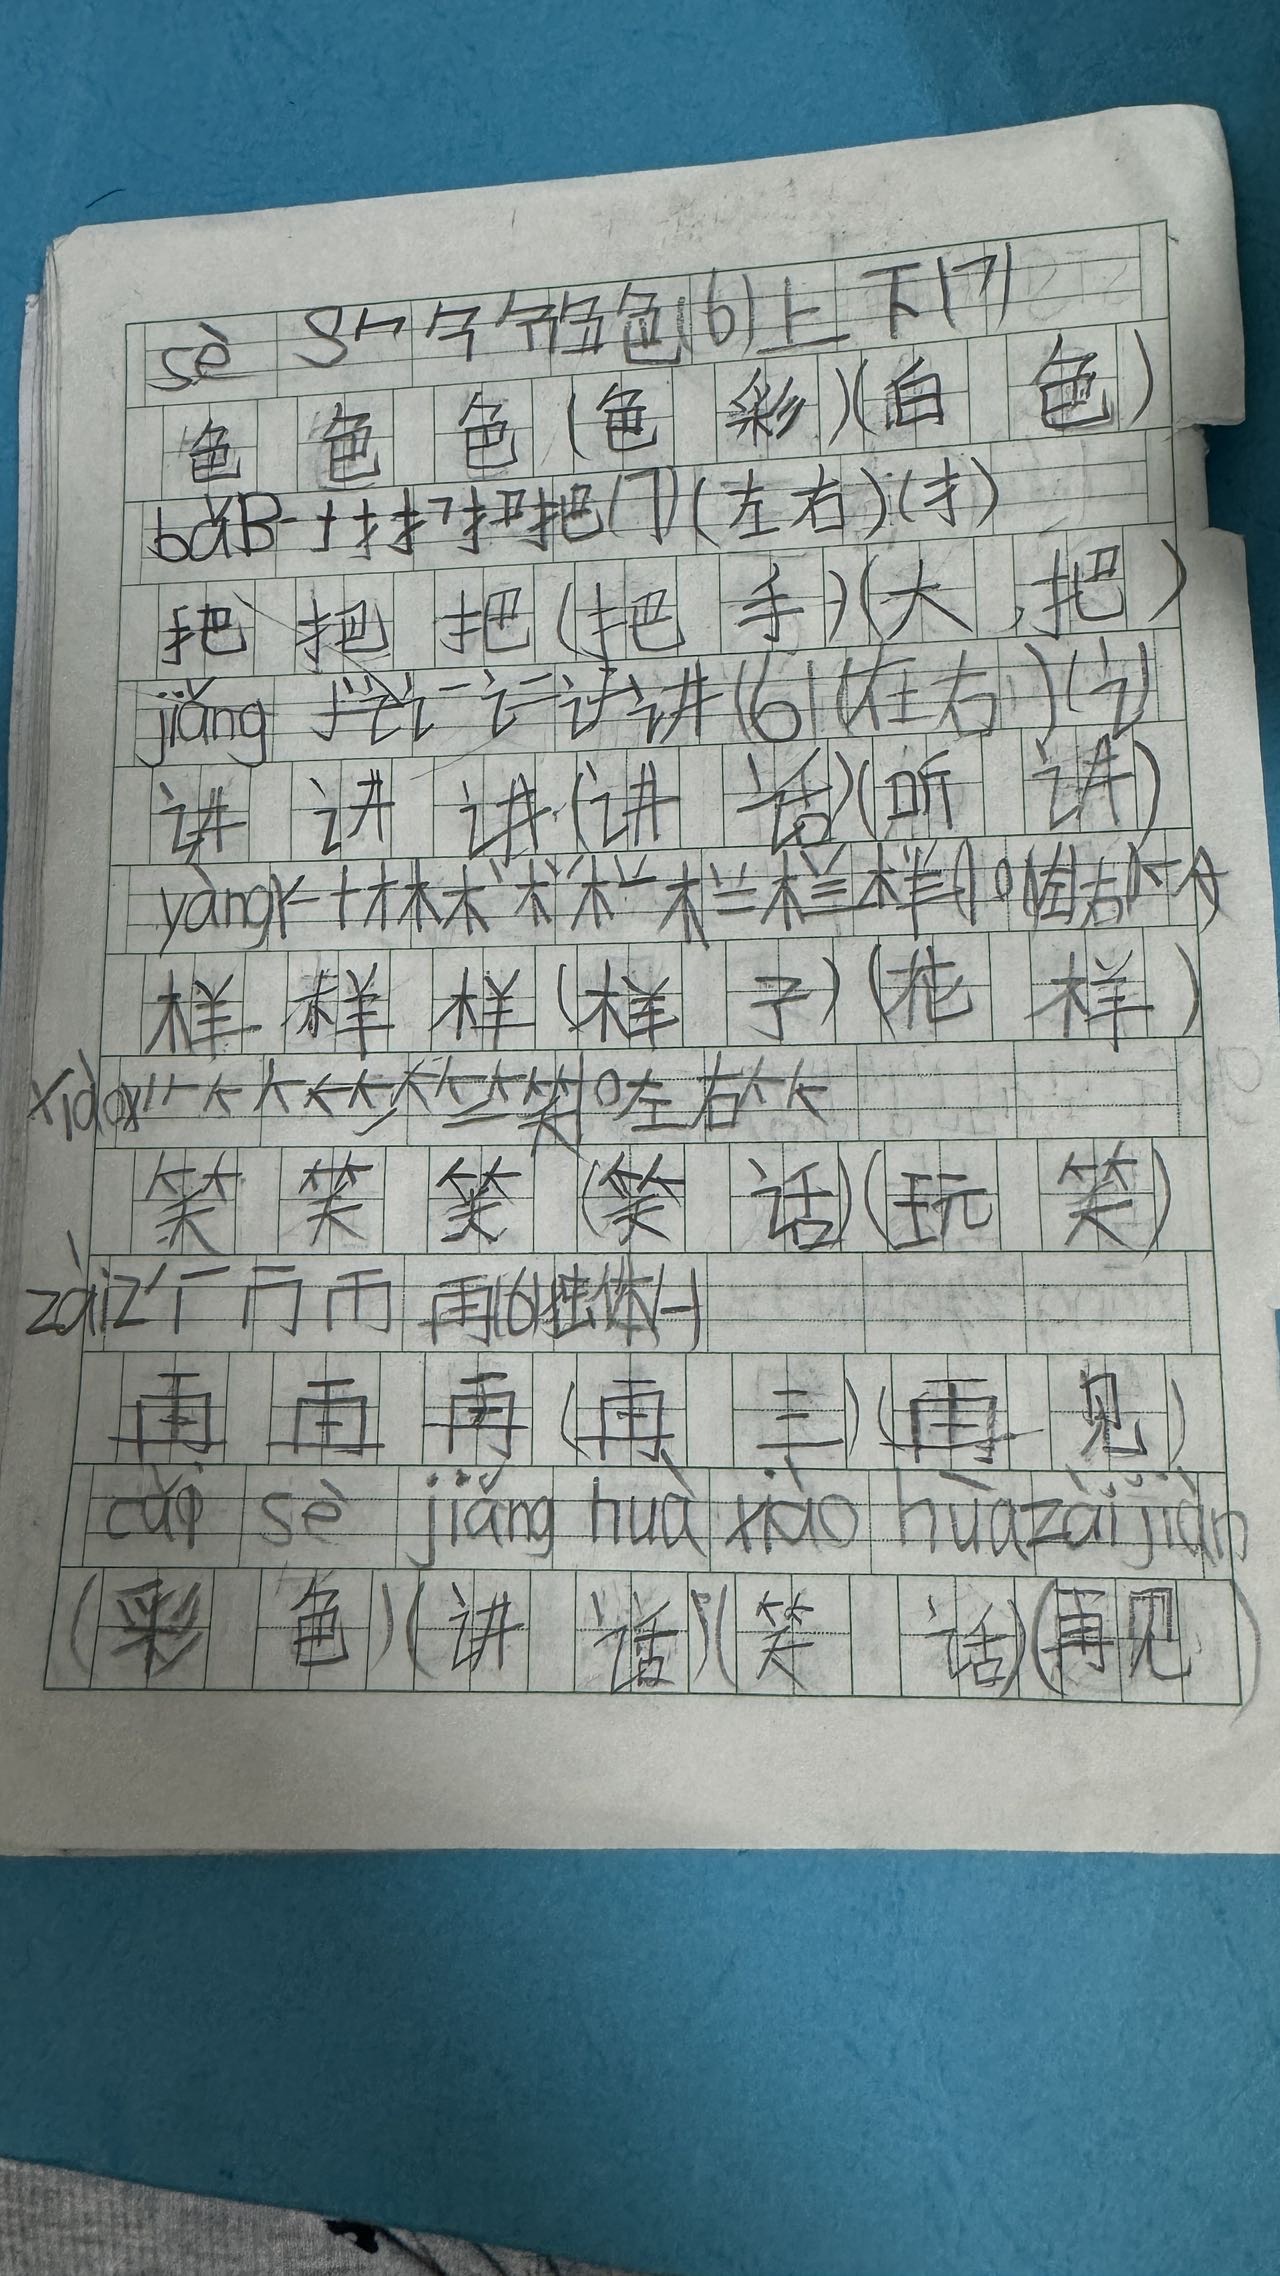 sè S 色(6)上下(⺈)
色 色 色(色彩)(白色)
bǎ B 一 十 扌 把(7)(左右)(扌)
把 把 把(把手)(大把)
jiǎng J 讲(6)(左右)(讠)
讲 讲 讲(讲话)(听讲)
yàng Y 一 十 才 木 样(10)(左右)
样 样 样(样子)(花样)
xiào X 笑 10 左右
笑 笑 笑(笑话)(玩笑)
zài Z 一 冂 再(6)独体(一)
再 再 再(再三)(再见)
cǎi sè jiǎng huà xiào hùa zài jiàn
(彩色)(讲话)(笑话)(再见)